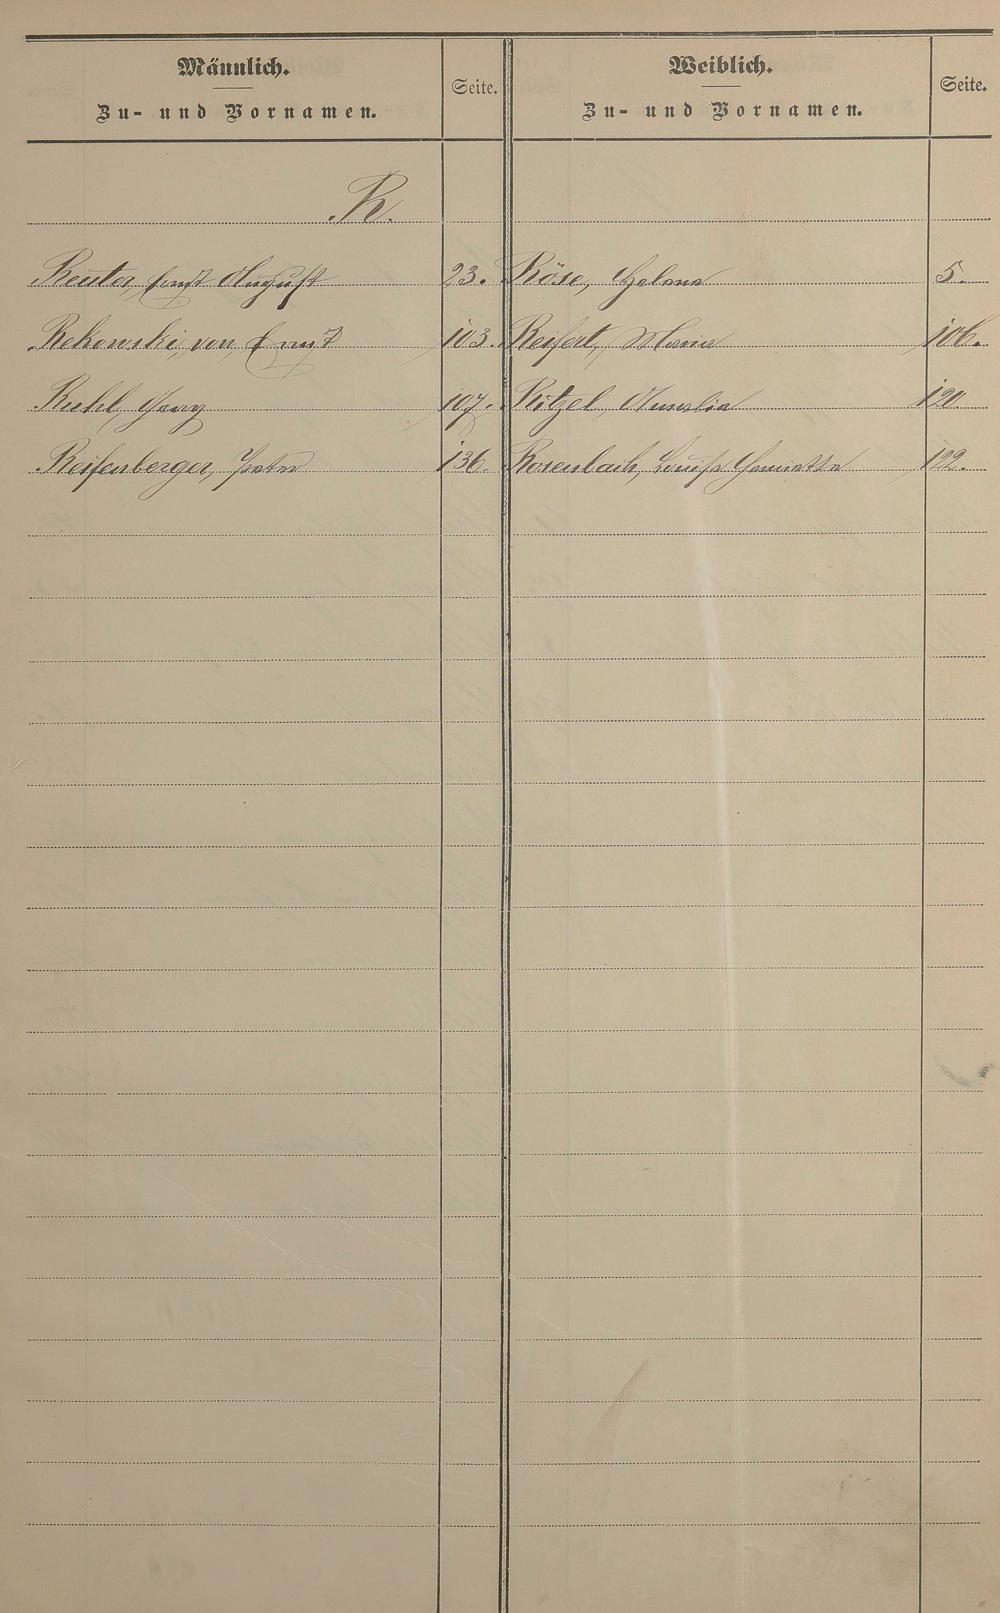 Männlich.
Zu- und Vornamen.
Seite.
Weiblich.
Zu- und Vornamen.
Seite.
R.
Reuter, Ernst August 23.
Rekowski, von, Ernst 103.
Ruhl, Georg 107.
Reifenberger, Peter 136.
Röse, Helene 5.
Reifert, Maria 106.
Ritzel, Aurelia 120.
Rosenbach, Louise Henriette 122.